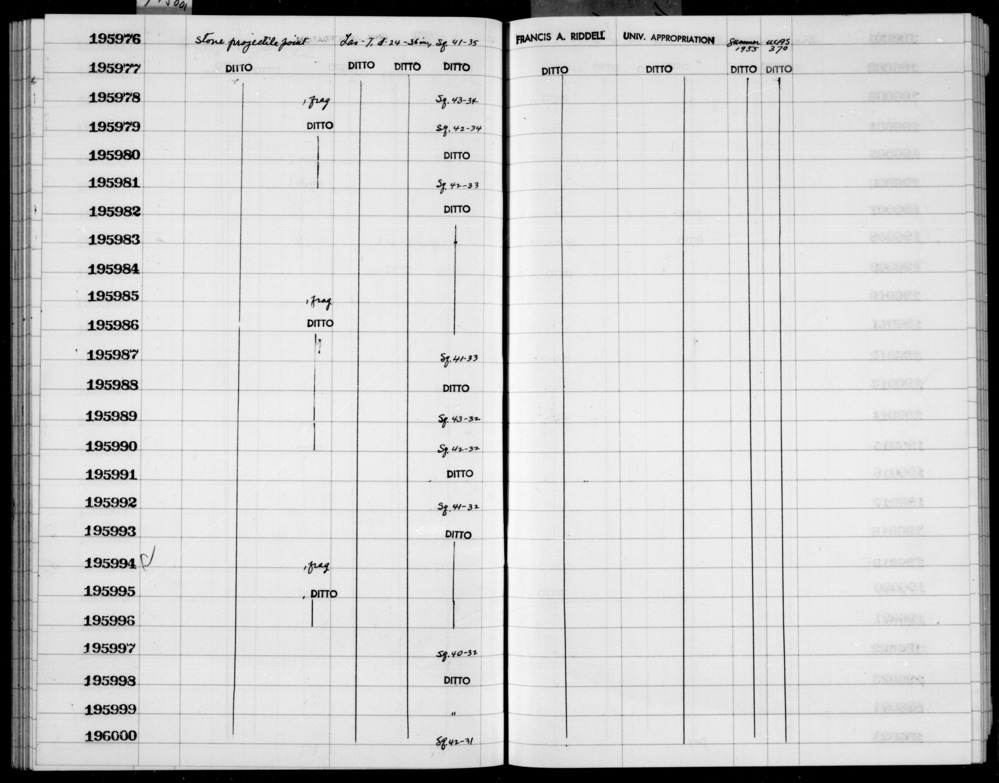 195976 stone projectile point Las-7, d. 24-36 in, Sq. 41-35 FRANCIS A. RIDDELL UNIV. APPROPRIATION Summer 1955 UCAS 370
195977 DITTO DITTO DITTO DITTO DITTO DITTO DITTO DITTO
195978 , frag Sq. 43-34
195979 DITTO Sq. 42-34
195980 DITTO
195981 Sq. 42-33
195982 DITTO
195983
195984
195985 , frag
195986 DITTO
195987 Sq. 41-33
195988 DITTO
195989 Sq. 43-32
195990 Sq. 42-32
195991 DITTO
195992 Sq. 41-32
195993 DITTO
195994 , frag
195995 , DITTO
195996
195997 Sq. 40-32
195998 DITTO
195999 "
196000 Sq. 42-31